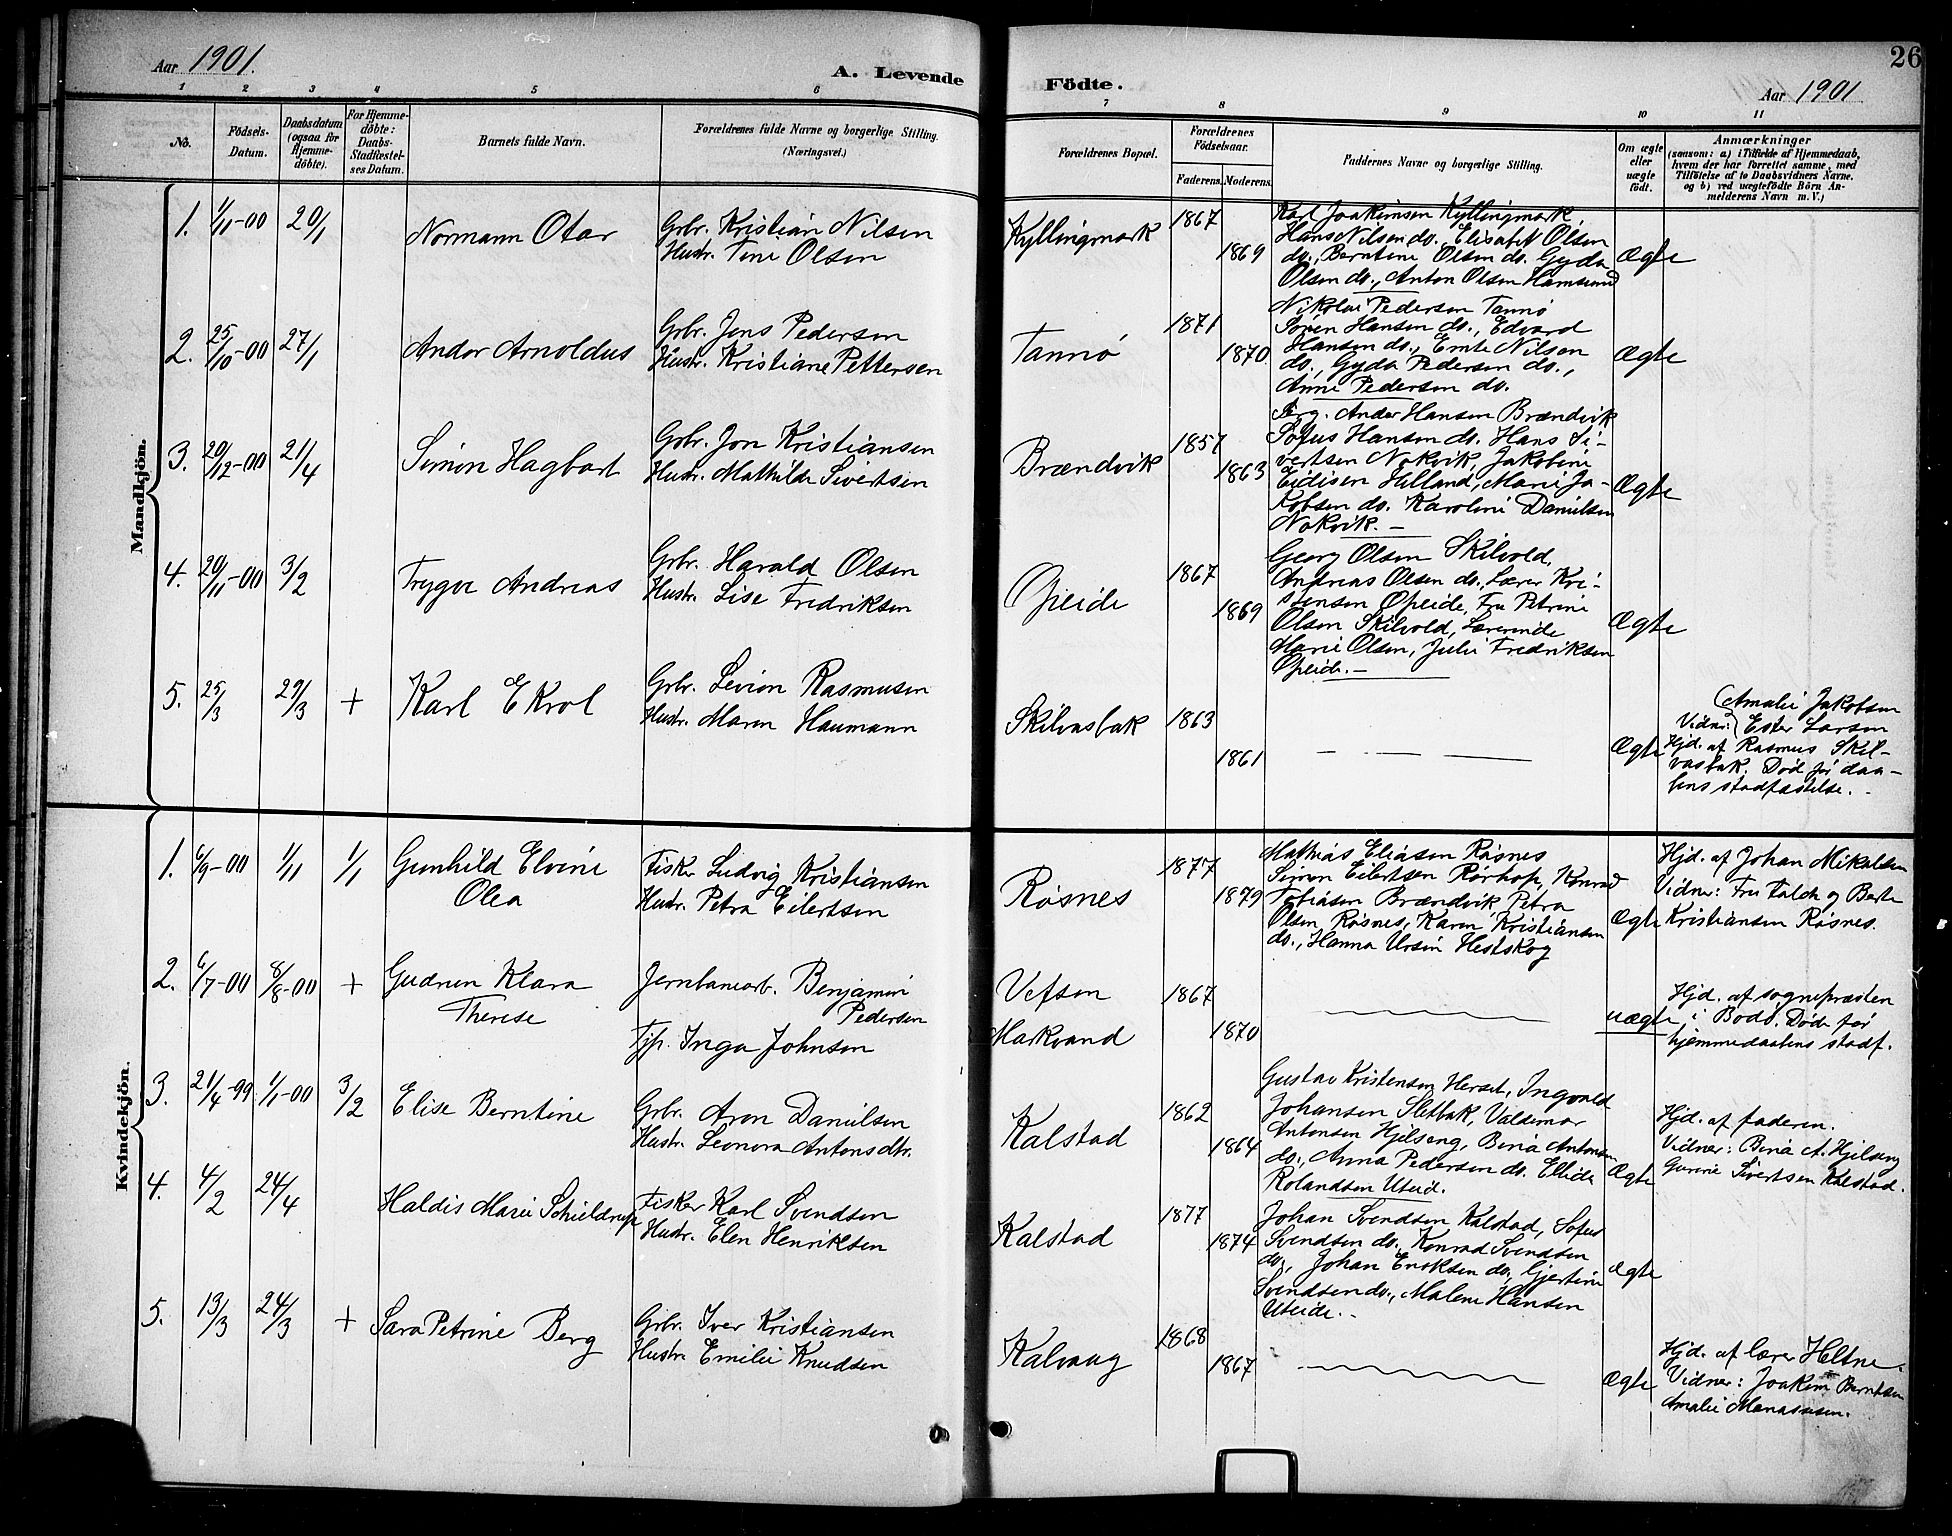 Aar 1901.
A. Levende
Födte.
26
Aar 1901
1 2 3 4 5 6 7 8 9 10 11
No.
Födsels-
Datum.
Daabsdatum
(ogsaa for
Hjemme-
döbte).
For Hjemme-
döbte:
Daabs-
Stadfestel-
ses Datum.
Barnets fulde Navn.
Forældrenes fulde Navne og borgerlige Stilling.
(Næringsvei.)
Forældrenes Bopæl.
Forældrenes
Födselsaar.
Faderens. Moderens.
Faddernes Navne og borgerlige Stilling.
Om ægte
eller
uægte
födt.
Anmærkninger
(saasom: a) i Tilfælde af Hjemmedaab,
hvem der har forrettet samme, med
Tilföielse af to Daabsvidners Navne.
og b) ved uægtefödte Börn An-
melderens Navn m. V.)
Mandkjön.
1. 1/11-00 20/1
Normann Otar
Grbr. Kristian Nilsen
Hustr. Tine Olsen
Kyllingmark
1867
1869
Karl Joakimsen Kyllingmark,
Hans Nilsen do. Elisabet Olsen
do., Berntine Olsen do. Gyda
Olsen do., Anton Olsen Hamsund
Ægte
2. 25/10-00 27/1
Andor Arnoldus
Grbr. Jens Pedersen
Hustr. Kristiane Pettersen
Tannö
1871
1870.
Nikolai Pedersen Tannö
Sören Hansen do., Edvard
Hansen do., Emte Nilsen
do., Gyda Pedersen do.,
Anne Pedersen do.
Ægte
3. 20/12-00 21/4
Simon Hagbart
Grbr. Jon Kristiansen
Hustr. Mathilde Sivertsen
Brændvik
1857
1863
Ander Hansen Brændvik
Sofus Hansen do. Hans Si-
vertsen Nokvik, Jakobine
Eidisen Helland, Marie Ja-
kobsen do. Karoline Danielsen
Nokvik. –
Ægte
4. 20/11-00 3/2
Trygve Andreas
Grbr. Harald Olsen
Hustr. Lise Fredriksen
Opeide
1867
1869
Georg Olsen Skilvold,
Andreas Olsen do., Lærer Kri-
stensen Opeide, Fru Petrine
Olsen Skilvold, Lærerinde
Marie Olsen, Julie Fredriksen
Opeide. –
Ægte
5. 25/3 29/3 +
Karl Ekrol
Grbr. Levion Rasmusen
Hustr. Maren Haumann
Skilvasbak
1863
1861
Ægte
Amalie Jakobsen
Vidner: Ester Larsen
Hjd. af Rasmus Skil-
vasbak. Död för daa-
bens stadfæstelse. –
Kvindekjön.
1. 6/9-00 1/11 1/1
Gunhild Elvine
Olea
Fisker Ludvig Kristiansen
Hustr. Petra Eilertsen
Rösnes
1877
1879
Mathias Eliasen Rösnes
Simon Eilertsen Rörhop, Konrad
Tobiasen Brændvik, Petra
Olsen Rösnes, Karen Kristiansen
do., Hanna Ursin Hestskog
Ægte
Hjd. af Johan Mikalsen
Vidner: Fru Falch og Berte
Kristiansen Rösnes.
2. 6/7-00 8/8-00 +
Gudrun Klara
Therese
Jernbanearb. Benjamin
Pedersen
Tjp. Inga Johnsen
Vefsen
Markvand
1867
1870
uægte
Hjd. af sognepræsten
i Bodö. Döde för
hjemmedaabens stadf.
3. 21/4-99 1/1-00 3/2
Elise Berntine
Grbr. Aron Danielsen
Hustr. Leonora Antonsdtr.
Kalstad
1862
1864
Gustav Kristensen Herset, Ingvald
Johansen Sletbak, Valdemar
Antonsen Hjelseng, Beria Antonsen
do., Anna Pedersen do. Ellide
Rolandsen Uteid.
Ægte
Hjd. af faderen.
Vidner: Beria A. Hjelseng
Gunnie Sivertsen Kalstad.
4. 4/2 24/4
Haldis Marie Schieldrup
Fisker Karl Svendsen
Hustr. Elen Henriksen
Kalstad
1877
1874
Johan Svendsen Kalstad, Sofus
Svendsen do. Konrad Svendsen
do., Johan Enoksen do., Gjertine
Svendsen do., Malene Hansen
Uteide. –
Ægte
5. 13/3 24/3 +
Sara Petrine Berg
Grbr. Iver Kristiansen
Hustr. Emilie Knudsen
Kalvaag
1868
1867
Ægte
Hjd. af lærer Heltne.
Vidner: Joakim Berntsen
Amalie Manassesen.